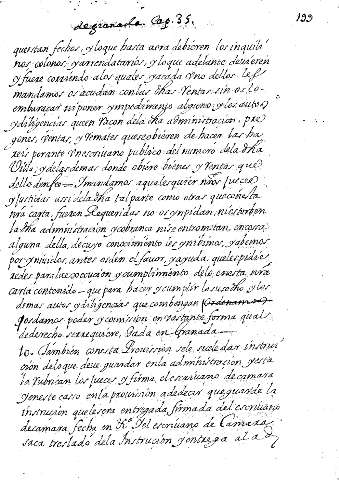 de granada. Cap. 35. 199
questan fechos, y lo que hasta aora debieren los inquili
nos colonos, y arrendatarios, y lo que adelante devieren
y fuere corriendo a los quales y a cada uno dellos, les
mandamos os acudan con las dhas Rentas sin os lo
embaraçar ni poner ympedimento alguno, y los autos
y diligencias que en raçon de la dha administracion, pre
gones, Rentas, y Remates que se obieren de hacer las ha
reis por ante un escrivano publico del numero de la dha
Villa, y de las demas donde obiere bienes y Rentas que
dello donfee = I mandamos a qualesquier nros Jueces
y Justicias assi de la dha tal parte como otras que con esta
nra carta, fueren Requeridas no os ynpidan, ni estorben
la dha administracion, y cobranca ni se entrometan, en cossa
alguna della, de cuyo conocimiento les ynivimos, y abemos
por ynividos, antes os den el favor, y ayuda, que les pidie
redes para la execucion y cumplimiento de lo en esta nra
carta contenido = que para hacer y cumplir lo susodho y los
demas autos y diligencias que combengan
os damos poder y comission en bastante forma qual
de derecho se requiere, Dada en Granada
10. Tambien con esta Provission, se le, suele dar instruc
cion de lo que deve guardar en la administracion, y esta
la rubrican los Jueces y firma, el escrivano de camara
y en este casso en la provission a de decir que guarde la
instrucion que le sera entregada firmada del escrivano
de camara, fecha en Rª. I el escrivano de Camara
saca treslado de la Instrucion y entrega al a